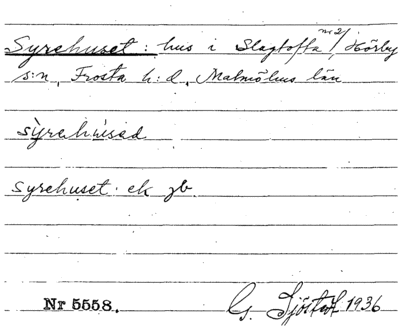 Syrehuset: hus i Slagtofta nr 2/, Hörby
s:n, Frosta h:d, Malmöhus län
syrehused
syrehuset. ek jb.
Nr 5558. G. Sjöstedt 1936